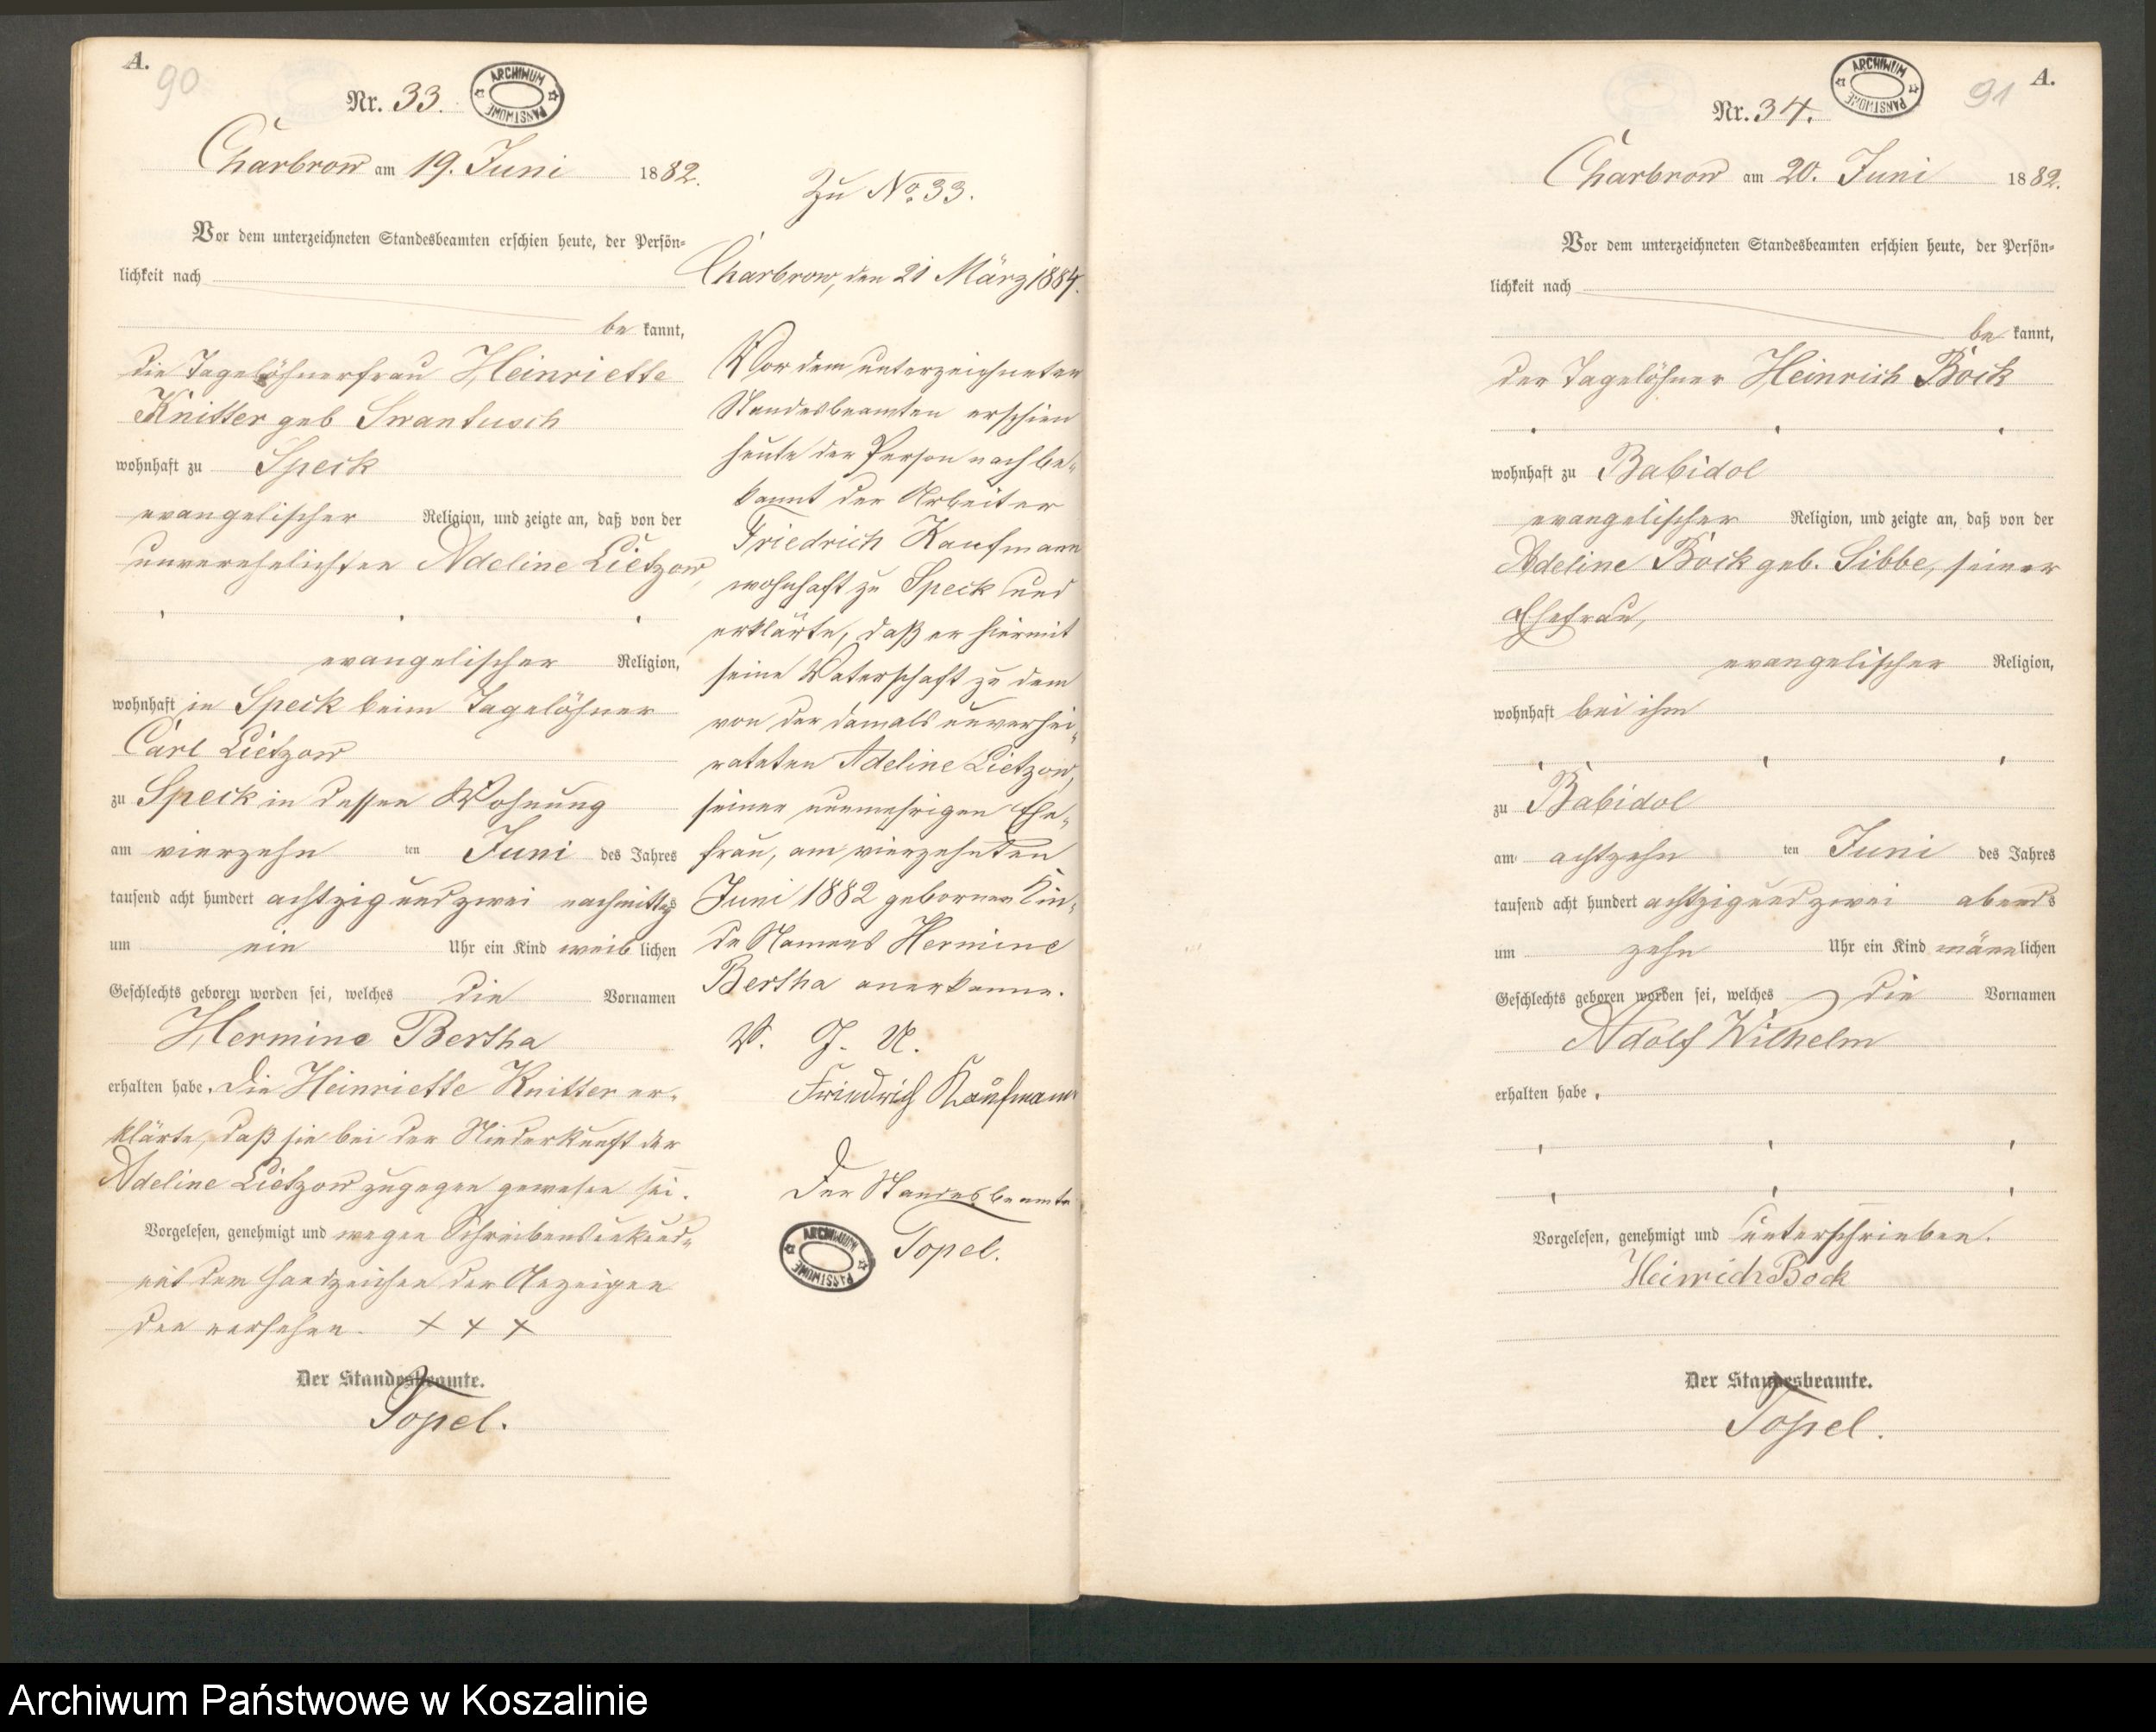 A.
90
Nr. 33.
ARCHIWUM PAŃSTWOWE
Charbrow am 19. Juni 1882.
Vor dem unterzeichneten Standesbeamten erschien heute, der Persön=
lichkeit nach
be kannt,
die Tagelöhnerfrau Heinriette
Knitter geb Swantusch
wohnhaft zu Speck
evangelischer Religion, und zeigte an, daß von der
unverehelichten Adeline Lietzow,
evangelischer Religion,
wohnhaft in Speck beim Tagelöhner
Carl Lietzow
zu Speck in dessen Wohnung
am vierzehn ten Juni des Jahres
tausend acht hundert achtzig und zwei nachmittags
um ein Uhr ein Kind weib lichen
Geschlechts geboren worden sei, welches die Vornamen
Hermine Bertha
erhalten habe. Die Heinriette Knitter er-
klärte, daß sie bei der Niederkunft der
Adeline Lietzow zugegen gewesen sei.
Vorgelesen, genehmigt und wegen Schreibensunkund-
mit dem Handzeichen der Anzeigen
den versehen. + + +
Der Standesbeamte.
Topel.
Zu No 33.
Charbrow, den 21 März 1884.
Vor dem unterzeichneten
Standesbeamten erschien
heute der Person nach be-
kannt der Arbeiter
Friedrich Kaufmann
wohnhaft zu Speck und
erklärte, daß er hiermit
seine Vaterschaft zu dem
von der damals unverhei-
rateten Adeline Lietzow,
seiner nunmehrigen Ehe-
frau, am vierzehnten
Juni 1882 gebornen Kin-
de Namens Hermine
Bertha anerkenne.
V. G. U.
Friedrich Kaufmann
Der Standesbeamte
Topel.
ARCHIWUM PAŃSTWOWE
A.
91
Nr. 34.
ARCHIWUM PAŃSTWOWE
Charbrow am 20. Juni 1882.
Vor dem unterzeichneten Standesbeamten erschien heute, der Persön=
lichkeit nach
be kannt,
der Tagelöhner Heinrich Bock
wohnhaft zu Babidol
evangelischer Religion, und zeigte an, daß von der
Adeline Bock geb. Libbe, seiner
Ehefrau,
evangelischer Religion,
wohnhaft bei ihm
zu Babidol
am achtzehn ten Juni des Jahres
tausend acht hundert achtzig und zwei abends
um zehn Uhr ein Kind männlichen
Geschlechts geboren worden sei, welches die Vornamen
Adolf Wilhelm
erhalten habe.
Vorgelesen, genehmigt und unterschrieben.
Heinrich Bock
Der Standesbeamte.
Topel.
Archiwum Państwowe w Koszalinie